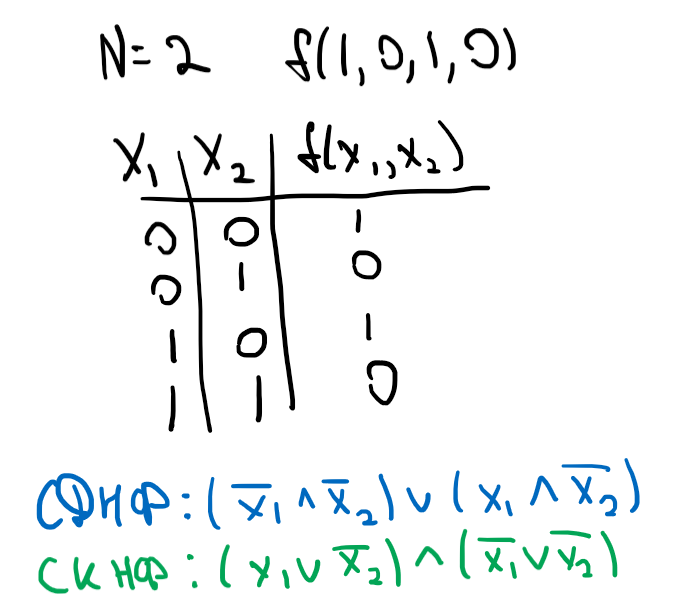 N=2 f(1,0,1,0)
x₁ x₂ f(x₁,x₂)
0 0 1
0 1 0
1 0 1
1 1 0
СДНФ: (x̅₁ ∧ x̅₂) ∨ (x₁ ∧ x̅₂)
СКНФ: (x₁ ∨ x̅₂) ∧ (x̅₁ ∨ x̅₂)